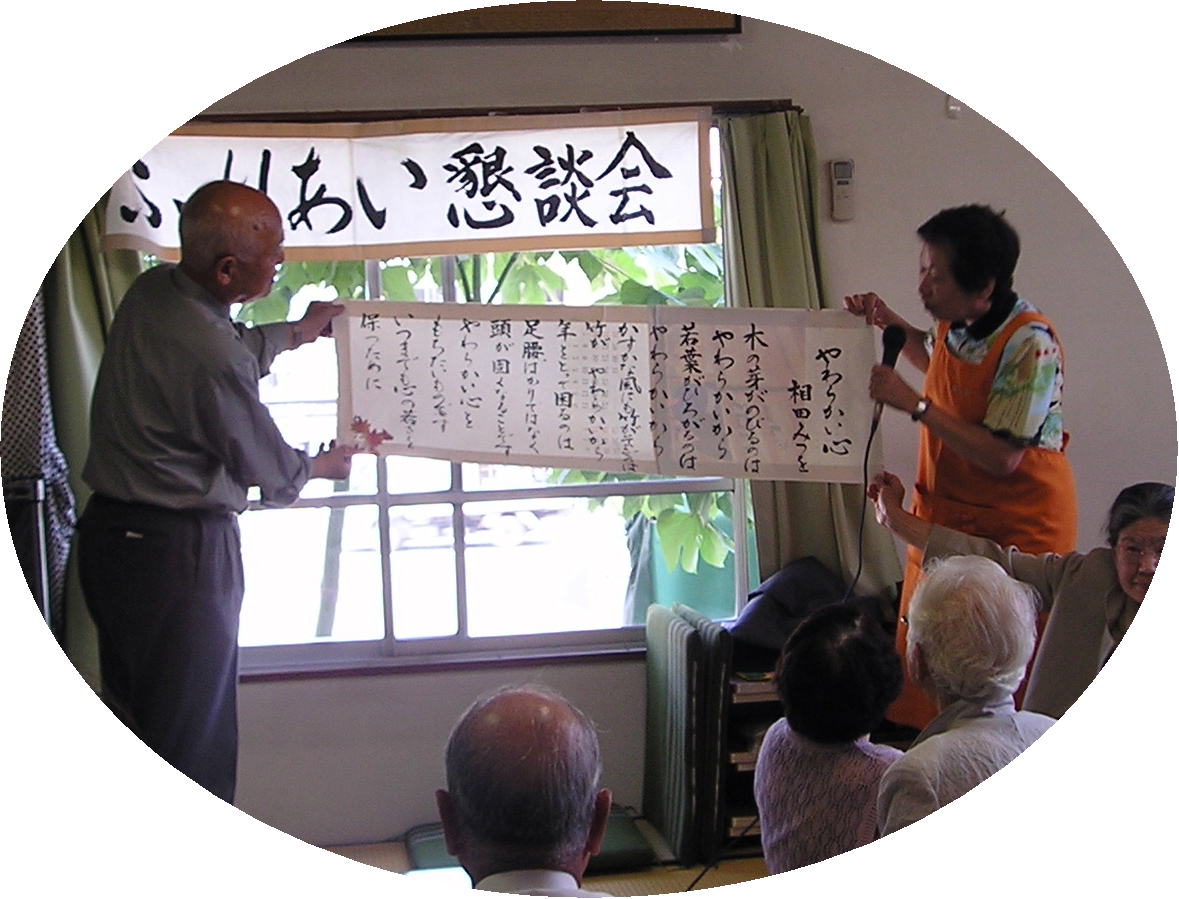 ふれあい懇談会
やわらかい心
相田みつを
木の芽がのびるのは
やわらかいから
若葉がひろがるのは
やわらかいから
かすかな風にも竹が
竹が やわらかいから
年をとって困るのは
足腰ばかりではなく
頭が固くなることです
やわらかい心を
もちたいものです
いつまでも心の若さを
保つために